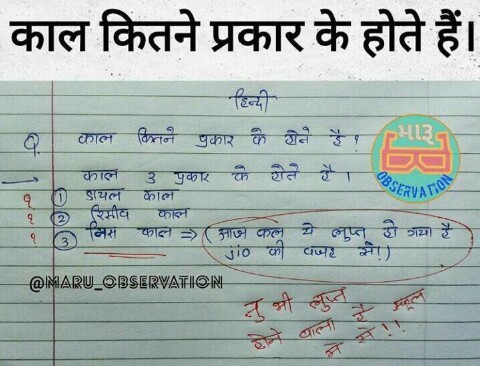 काल कितने प्रकार के होते हैं।
हिन्दी
Q. काल कितने प्रकार के होते है ?
काल 3 प्रकार के होते है ।
१ ① डायल काल
१ ② रिसीव काल
१ ③ मिस काल ⇒ ( आज कल ये लुप्त हो गया है
jio की वजह से! )
મારૂ
OBSERVATION
@MARU_OBSERVATION
तु भी लुप्त
होने वाला है स्कूल
मे से !!